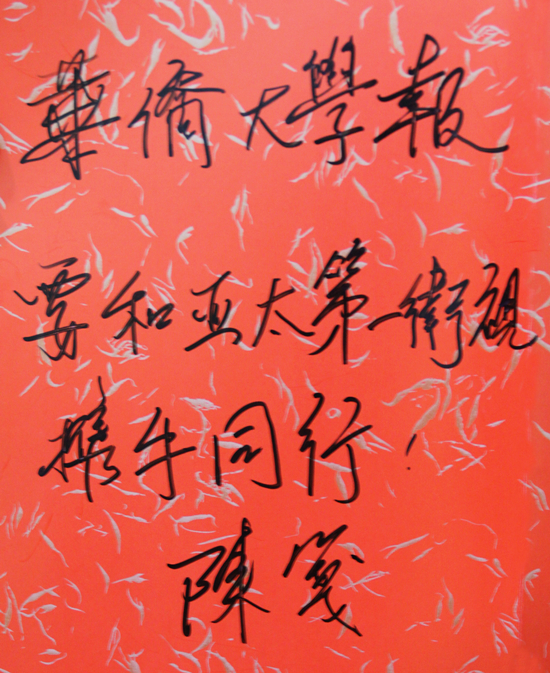 華僑大學報
要和亚太第一衛視
携手同行!
陳笺